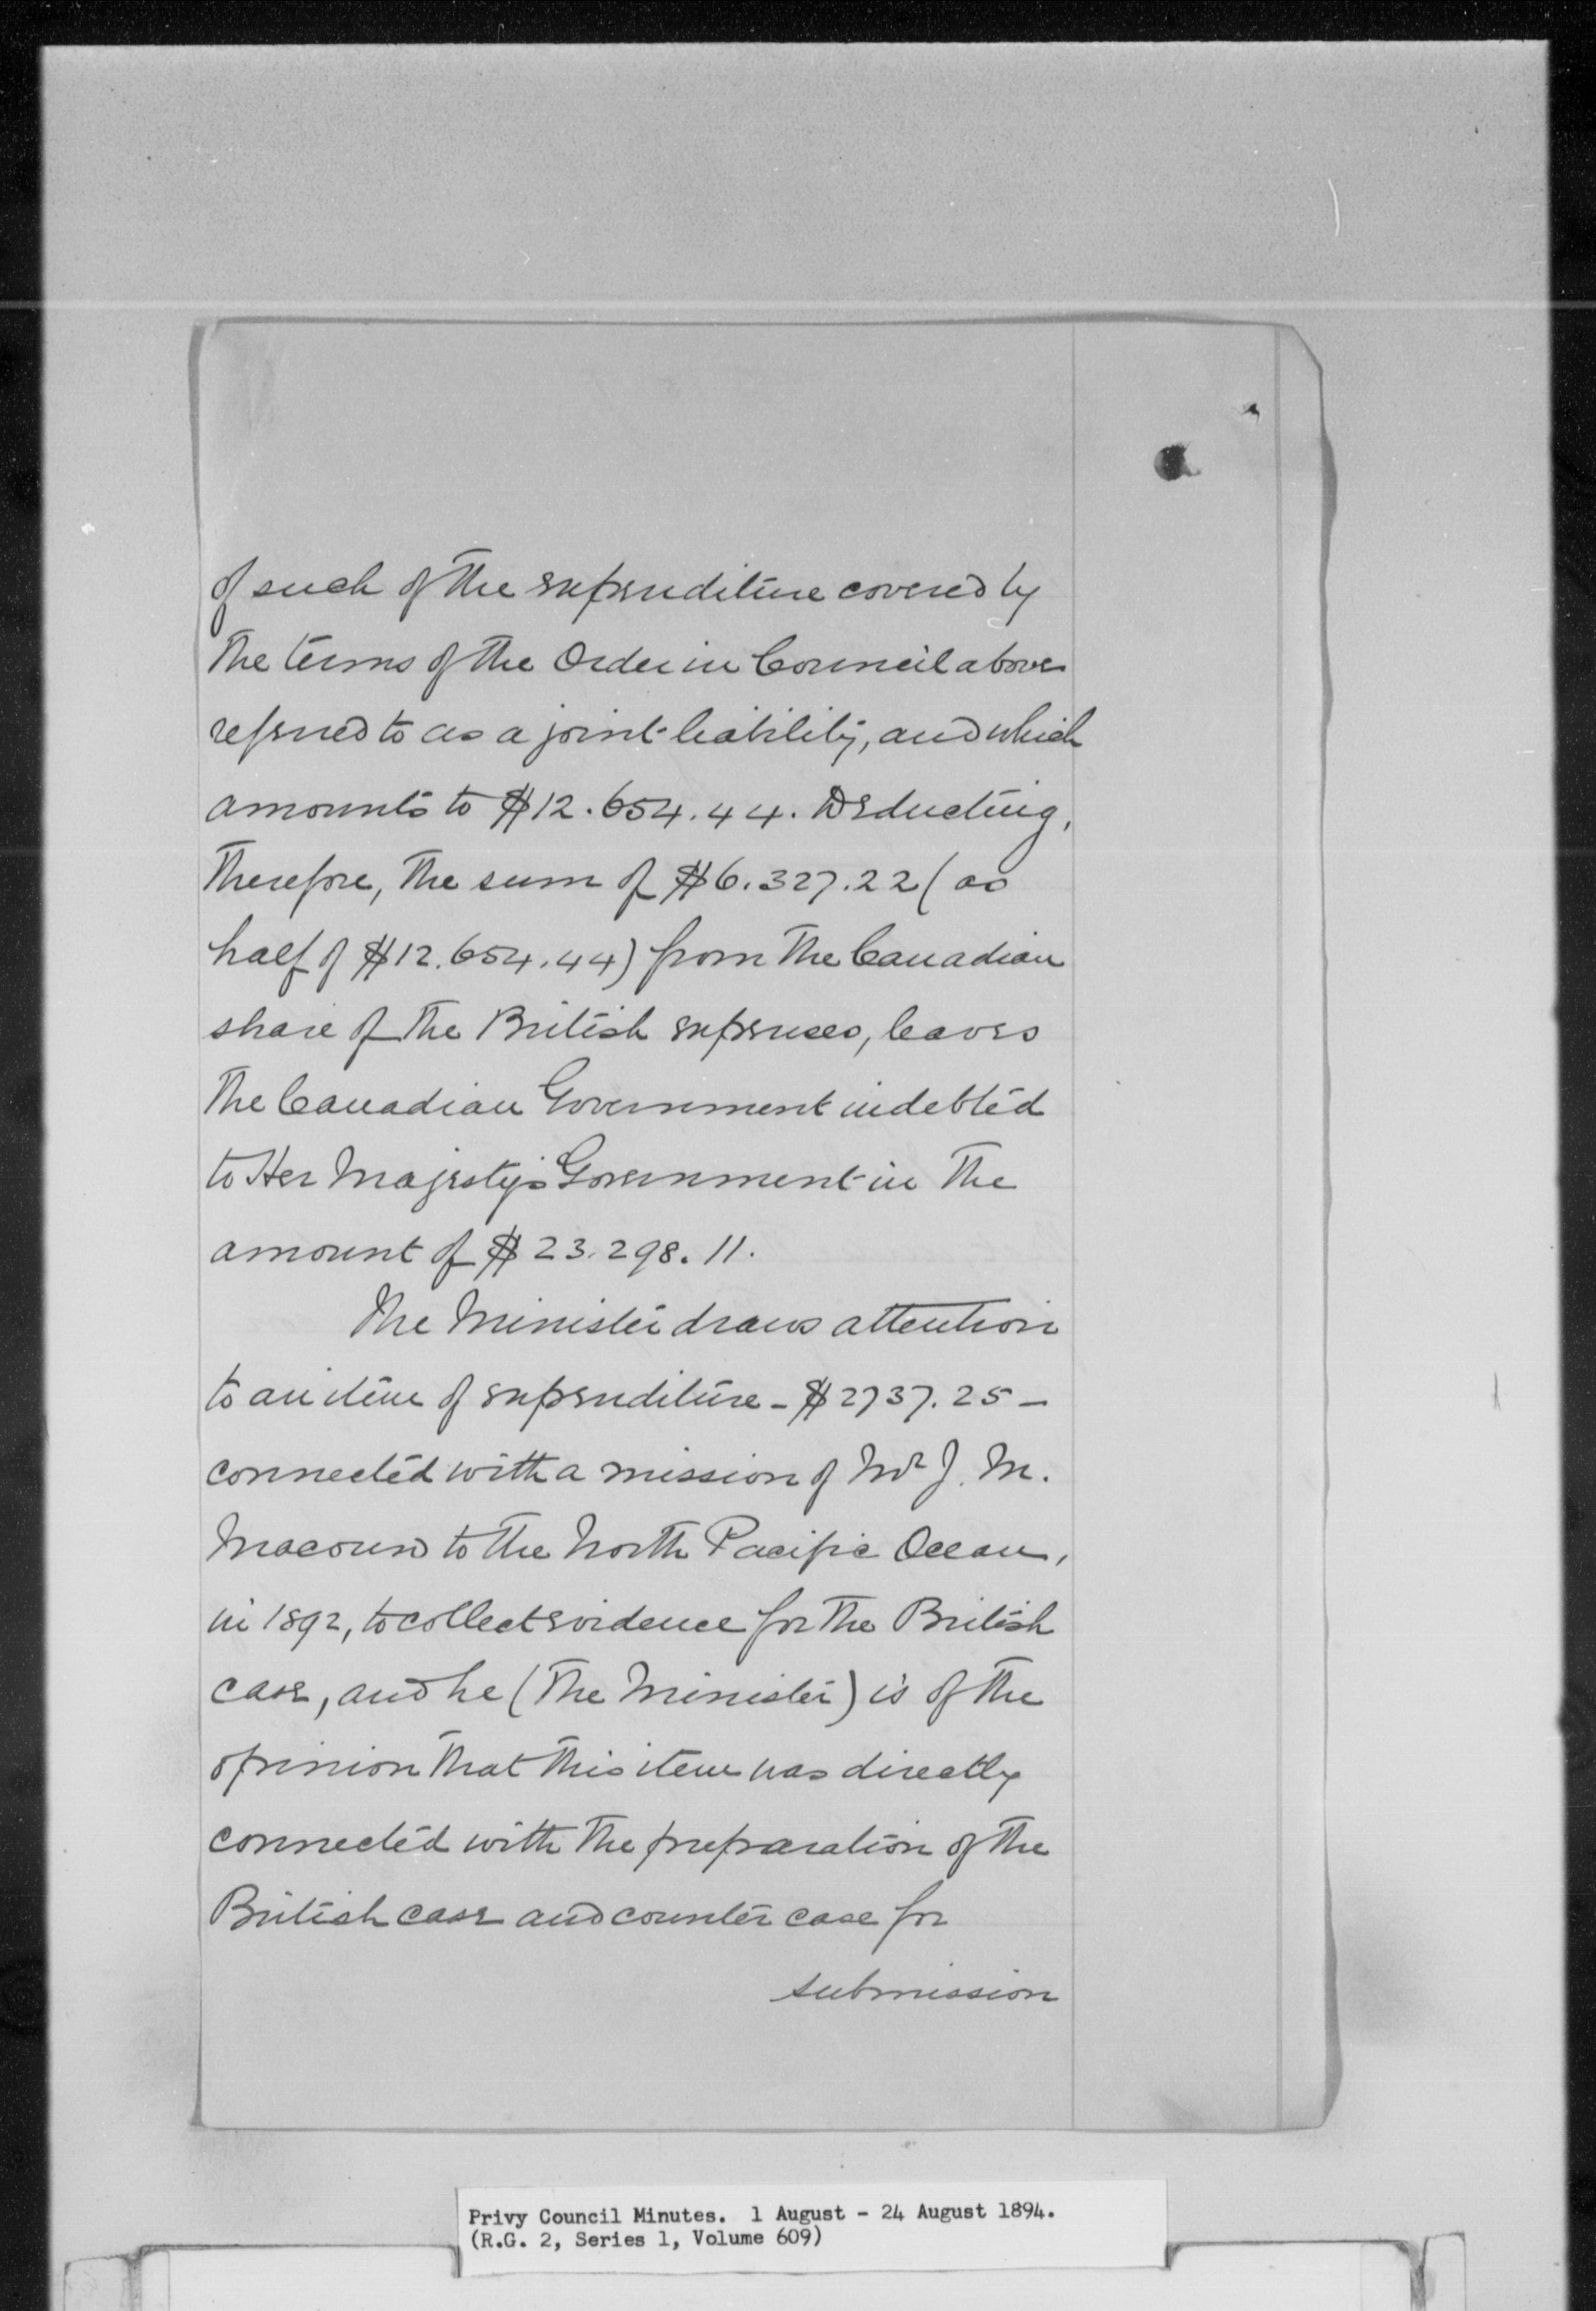 of such of the expenditure covered by
the terms of the Order in Council above
referred to as a joint liability, and which
amounts to $12.654.44. Deducting,
therefore, the sum of $6.327.22 (as
half of $12.654.44) from the Canadian
share of the British expenses, leaves
the Canadian Government indebted
to Her Majesty's Government in the
amount of $23.298.11.
The Minister draws attention
to an item of expenditure - $2737.25 -
connected with a mission of Mr J. M.
Macoun to the North Pacific Ocean,
in 1892, to collect evidence for the British
case, and he (the Minister) is of the
opinion that this item was directly
connected with the preparation of the
British case and counter case for
submission
Privy Council Minutes. 1 August - 24 August 1894.
(R.G. 2, Series 1, Volume 609)